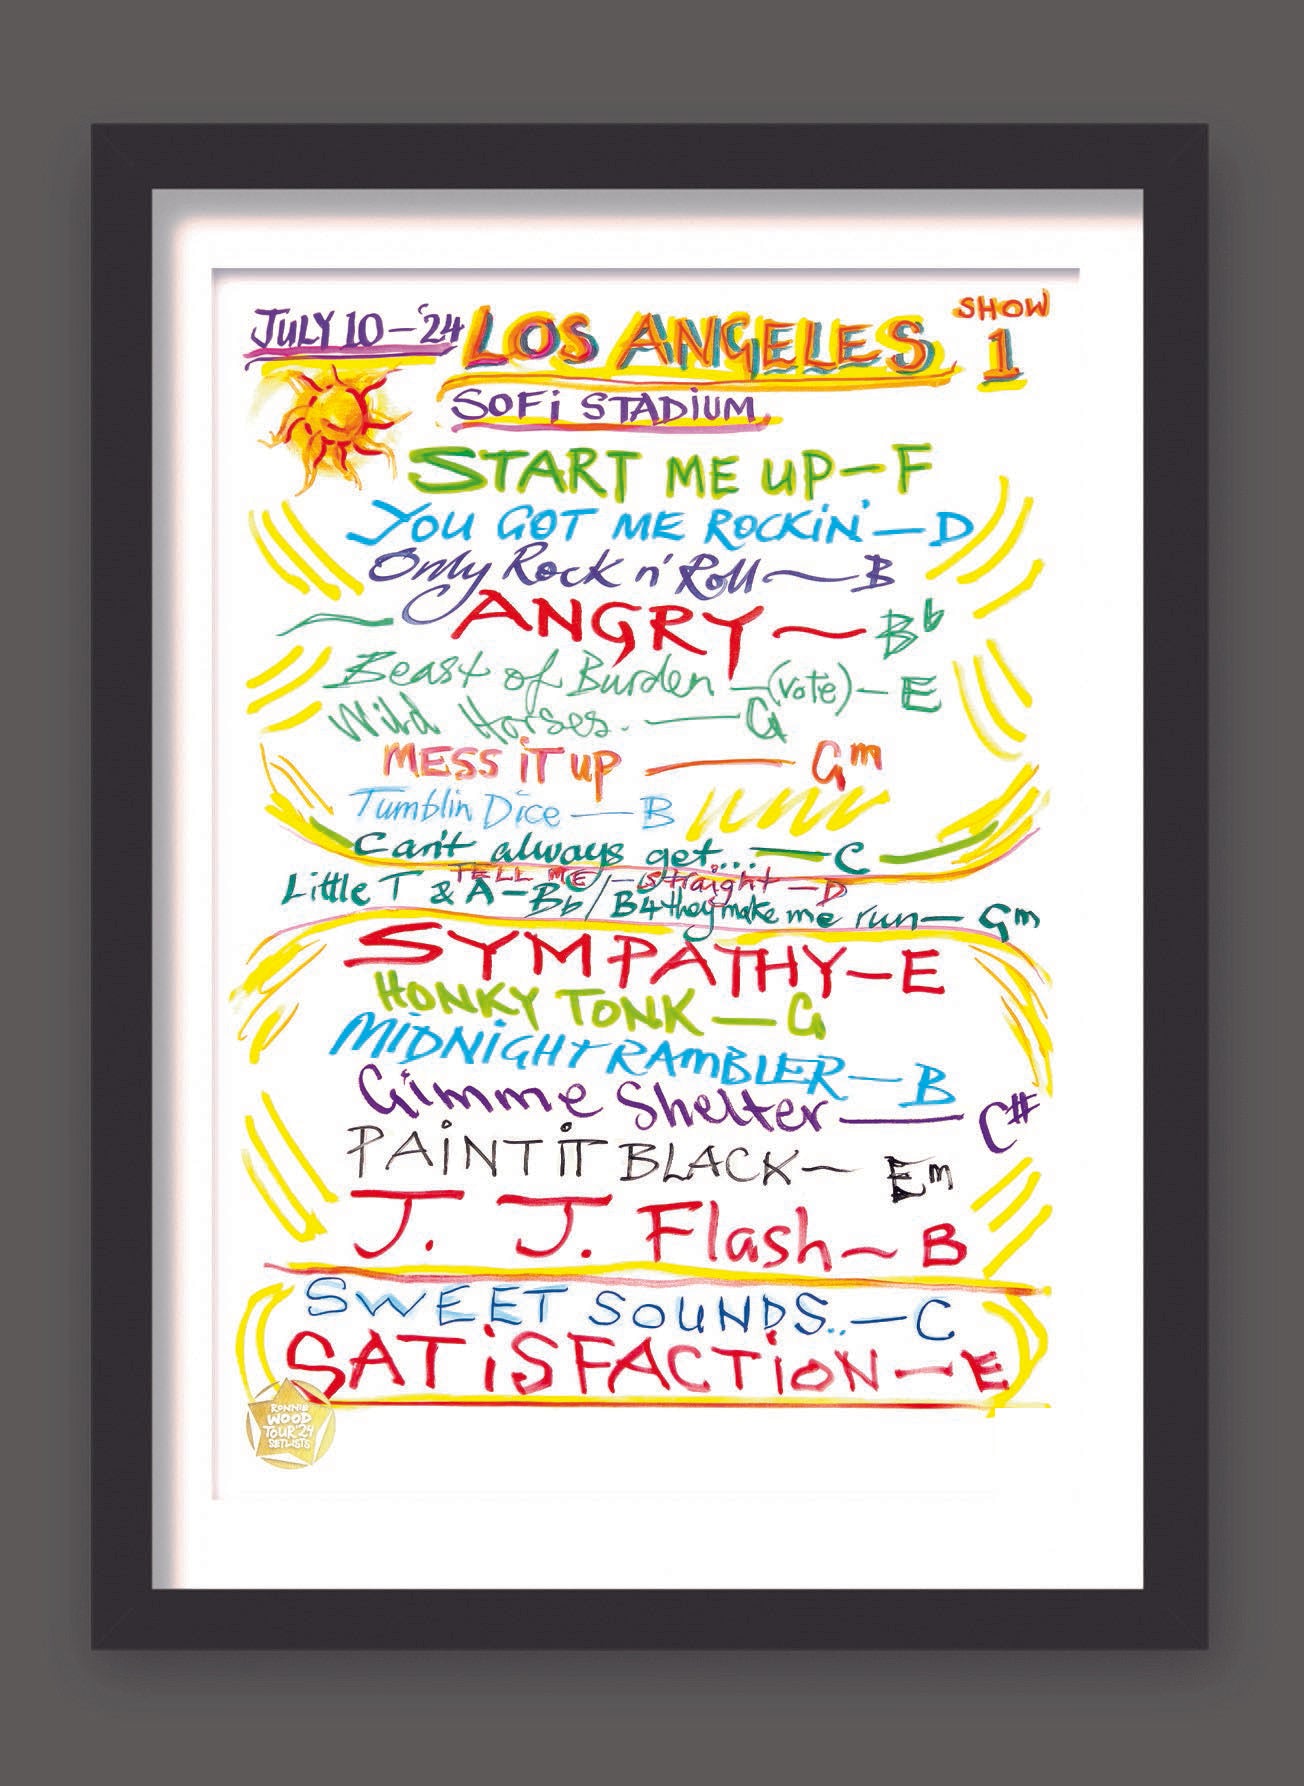 JULY 10 – '24 LOS ANGELES SHOW 1
SOFi STADIUM
START ME UP – F
YOU GOT ME ROCKiN' – D
Only Rock n' Roll ~ B
ANGRY ~ Bb
Beast of Burden – (vote) – E
Wild Horses. – G
MESS iT UP – Gm
Tumblin Dice – B
Can't always get... – C
TELL ME – Straight – D
Little T & A – Bb / B4 they make me run – Gm
SYMPATHY – E
HONKY TONK – G
MiDNiGHT RAMBLER – B
Gimme Shelter – C#
PAiNT iT BLACK ~ Em
J. J. Flash ~ B
SWEET SOUNDS.. – C
SATiSFACTiON – E
RONNIE
WOOD
TOUR '24
SETLISTS